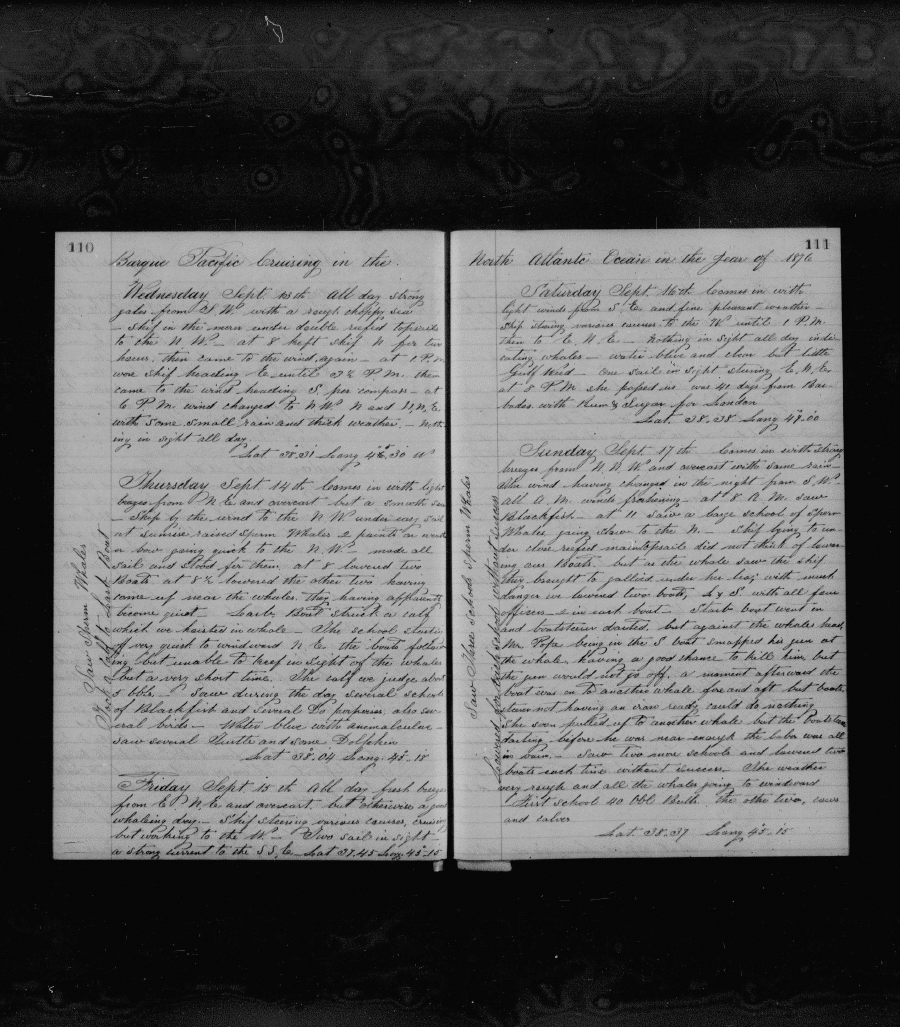 110
Barque Pacific Cruising in the
Wednesday Sept 13th All day strong
gales from S.W. with a rough choppy sea
- Ship in the morn under double reefed topsails
to the N.W. - at 8 kept ship N for two
hours, then came to the wind again - at 1 P.M.
wore ship heading E until 3½ P.M. then
came to the wind heading S. per compass - at
6 P.M. wind changed to N.W. N and N.N.E.
with some small rain and thick weather. - Noth
ing in sight all day.
Lat 38.31 Long 46.30 W
Thursday Sept 14th Comes in with light
breezes from N.E and overcast but a smooth sea
- Ship by the wind to the N.W. under easy sail
at sunrise raised Sperm Whales 2 points on weath
er bow going quick to the N.W. - made all
sail and stood for them, at 8 lowered two
Boats at 8½ lowered the other two having
come up near the whales. they having apparently
become quiet Larb. Boat struck a calf
which we hoisted in whole - The school started
off very quick to windward N.E. the boats follow
ing but unable to keep in sight of the whales
but a very short time. The calf we judge about
5 bbls - Saw during the day several schools
of Blackfish and several Do porpoises, also sev
eral birds - Water blue with animalculae -
saw several Turtle and some Dolphin
Lat 38.04 Long. 45.18
Friday Sept 15th All day fresh breezes
from E.N.E and overcast but otherwise a good
whaling day. - Ship steering various courses, cruising
but working to the W. - Two sail in sight
a strong current to the S.S.E. - Lat 37.45 Long 45-15
Saw Sperm Whales
Took a calf to Larb. Boat
111
North Atlantic Ocean in the Year of 1876
Saturday Sept 16th Comes in with
light winds from S.E. and fine pleasant weather -
Ship steering various courses to the W until 1 P.M.
then to E.N.E - Nothing in sight all day indi
cating whales - water blue and clear but little
Gulf weed - one sail in sight steering E.N.E.
at 8 P.M. she passed us was 41 days from Bar-
badoes with Rum & Sugar for London
Lat. 38.38 Long 47.00
Sunday Sept. 17th Comes in with strong
breezes from N.N.W. and overcast with some rain -
the wind having changed in the night from S.W. -
All A.M. winds freshening - at 8 A.M. saw
Blackfish - at 11 saw a large school of Sperm
Whales going slow to the N. - Ship lying to un-
der close reefed maintopsail did not think of lower-
ing our Boats. but as the whale saw the ship
they brought to gallied under her lee, with much
danger we lowered two boats, L & S with all four
officers - 2 in each boat - Starb boat went on
and boatsteerer darted, but against the whales head,
Mr. Pope being in the S boat snapped his gun at
the whale, having a good chance to kill him, but
the gun would not go off, a moment afterward the
boat was on to another whale fore and aft but boat
steerer not having an iron ready could do nothing
She soon pulled up to another whale but the boatsteerer
darting before he was near enough the labor was all
in vain. - Saw two more schools and lowered two
boats each time without success - The weather
very rough and all the whales going to windward
First school 40 bbl Bulls. the other two, cows
and calves
Lat. 38.37 Long 45-15
Saw three schools Sperm Whales
Lowered for each school without success